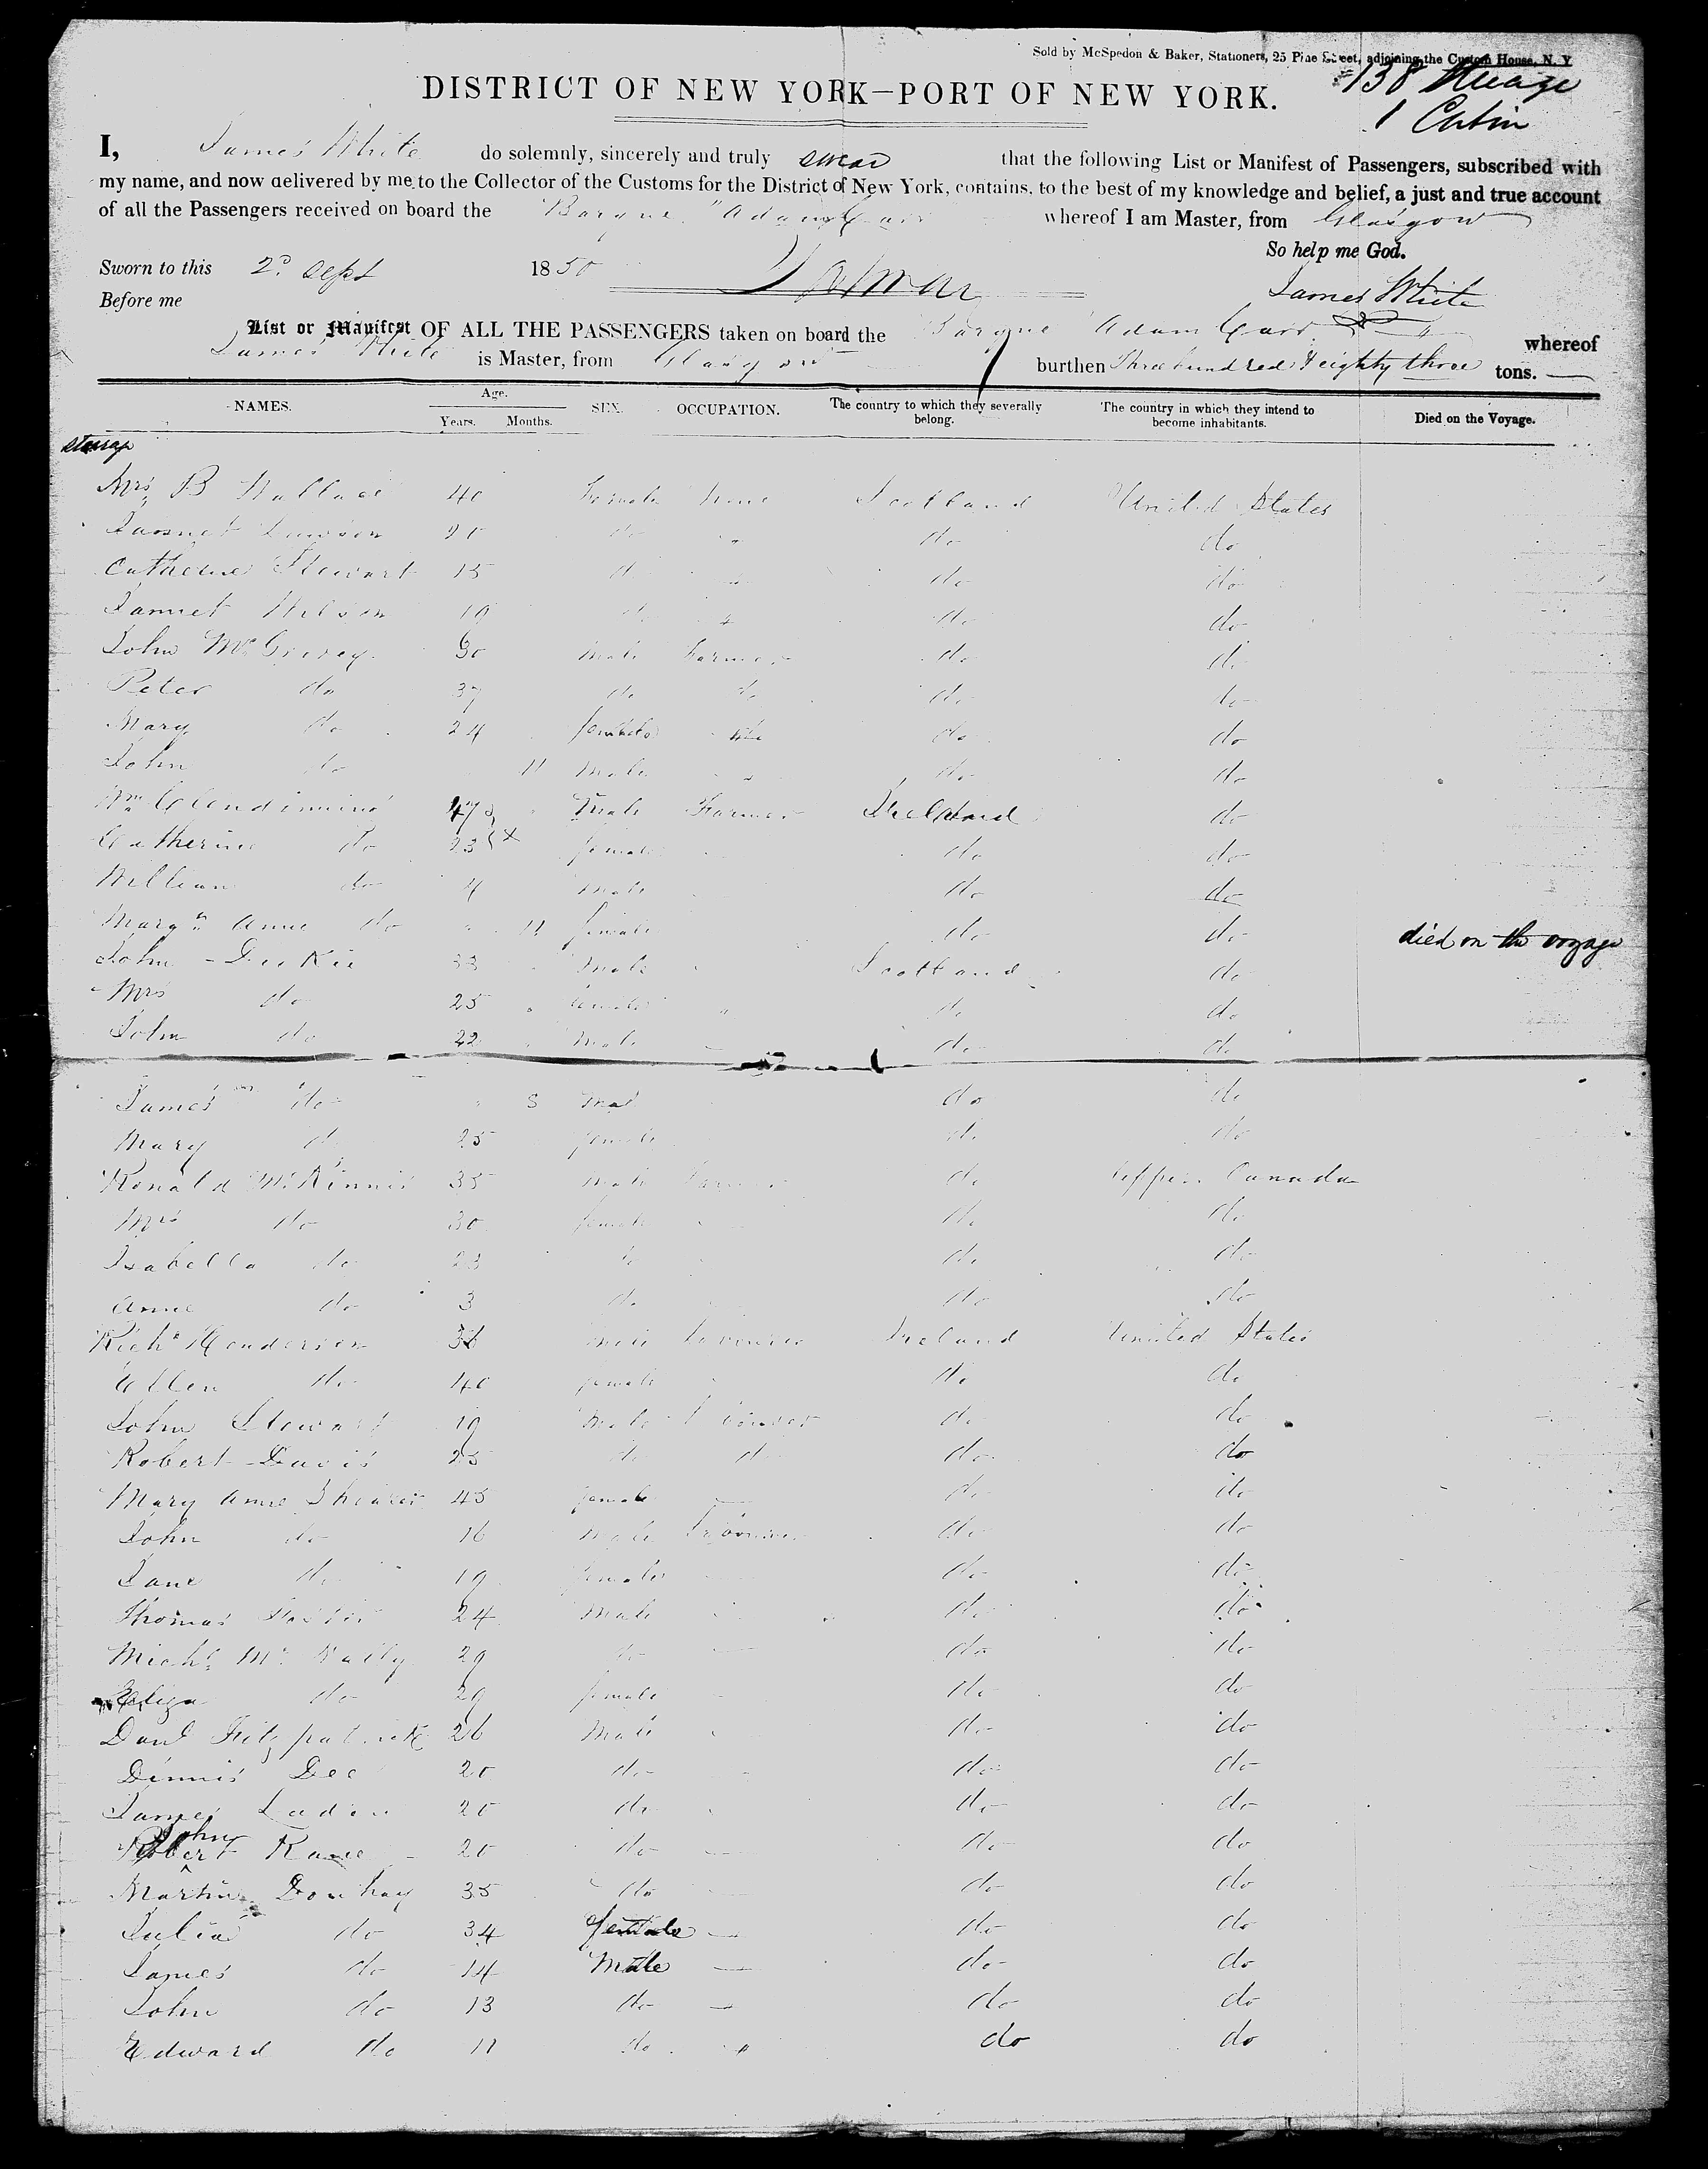 Sold by McSpedon & Baker, Stationers, 25 Pine Street, adjoining the Custom House, N. Y
138 Steerage
1 Cabin
DISTRICT OF NEW YORK—PORT OF NEW YORK.
I, James White do solemnly, sincerely and truly swear that the following List or Manifest of Passengers, subscribed with
my name, and now delivered by me to the Collector of the Customs for the District of New York, contains, to the best of my knowledge and belief, a just and true account
of all the Passengers received on board the Barque "Adam Carr" whereof I am Master, from Glasgow
So help me God.
Sworn to this 2d Sept 1850
James White
Before me
List or Manifest OF ALL THE PASSENGERS taken on board the Barque Adam Carr whereof
James White is Master, from Glasgow burthen Three hundred & eighty three tons.
NAMES. Age. Years. Months. SEX. OCCUPATION. The country to which they severally belong. The country in which they intend to become inhabitants. Died on the Voyage.
Steerage
Mrs B Wallace 40 Female None Scotland United States
20 do " do do
Catherine Stewart 15 do " do do
Wilson 19 do " do do
John 30 Male Farmer do do
Peter do 37 do do do do
Mary do 24 female do do
John do 11 Male " do do
Wm Clendinning 47 Male Farmer Ireland do
Catherine do 23 female do do
William do 4 Male do do
Margt Anne do 11 female do do died on the voyage
John Dickie 33 Male Scotland do
Mrs do 25 female " do do
John do 22 Male do do
James do 8 Male do do
Mary do 25 female do do
Ronald McKinnis 35 Male Farmer do Upper Canada
Mrs do 30 female do do
Isabella do 23 do do do
Anne do 3 do do do
Richd Henderson 36 Male Labourer Ireland United States
Ellen do 40 female do do
John Stewart 19 Male Labourer do do
Robert Davis 25 do do do do
Mary Anne Shearer 45 female do do
John do 16 Male Labourer do do
Jane do 19 female do do
Thomas 24 Male do do
Michl McNally 29 do do do
Eliza do 29 female do do
Danl Fitzpatrick 26 Male do do
Dennis Dee 20 do do do
James 20 do do do
John
Robert Kane 20 do do do
Martin Donhay 35 do do do
Julia do 34 female do do
James do 14 Male do do
John do 13 do do do
Edward do 11 do " do do